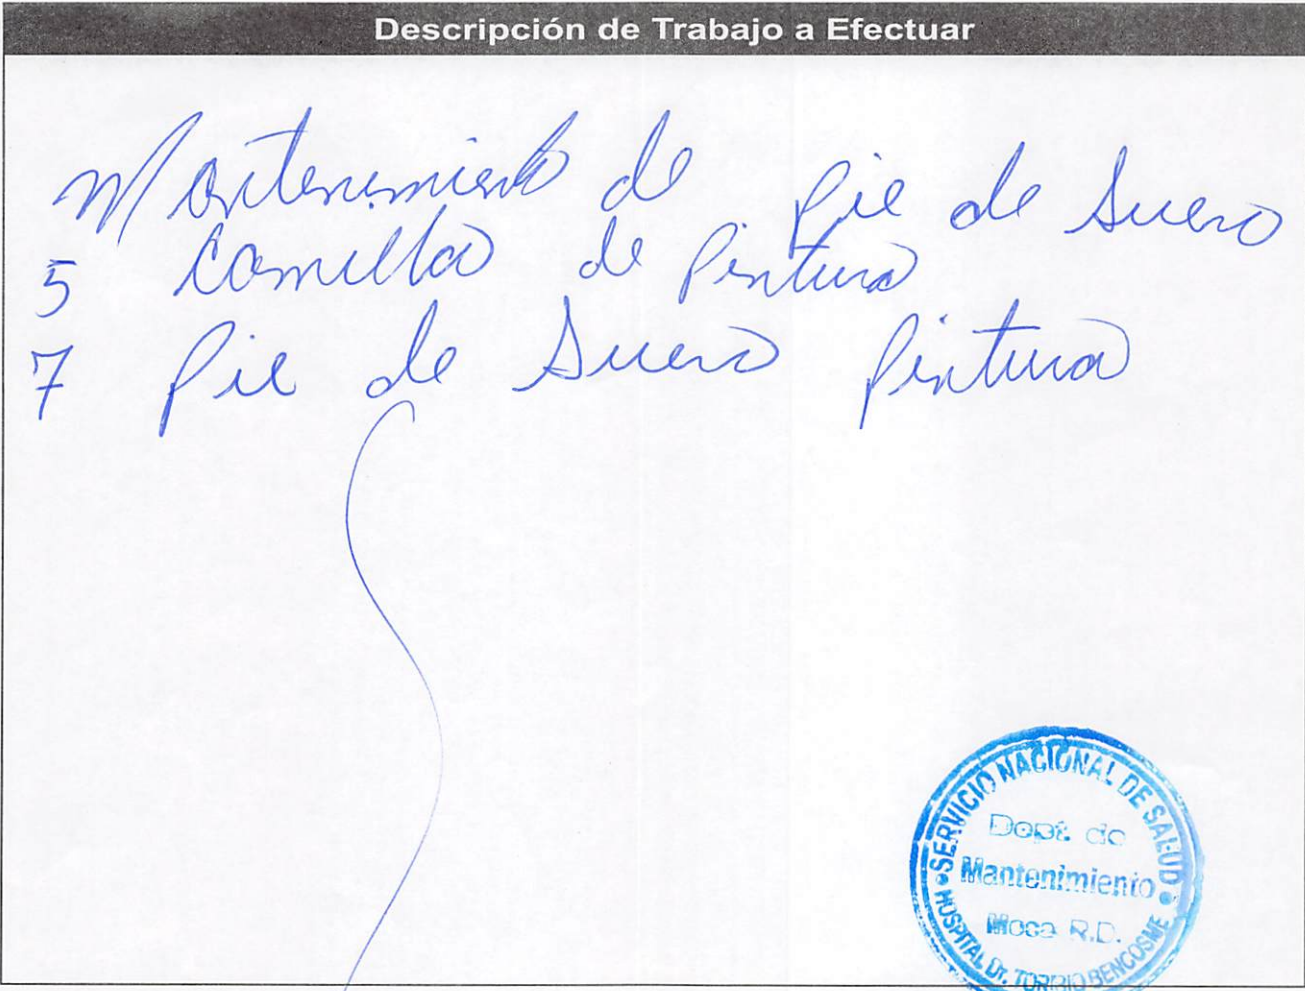 Descripción de Trabajo a Efectuar
Mantenimiento de pie de Suero
5 Camilla de Pintura
7 Pie de Suero Pintura
SERVICIO NACIONAL DE SALUD
Dept. de
Mantenimiento
Moca R.D.
HOSPITAL Dr. TORIBIO BENCOSME